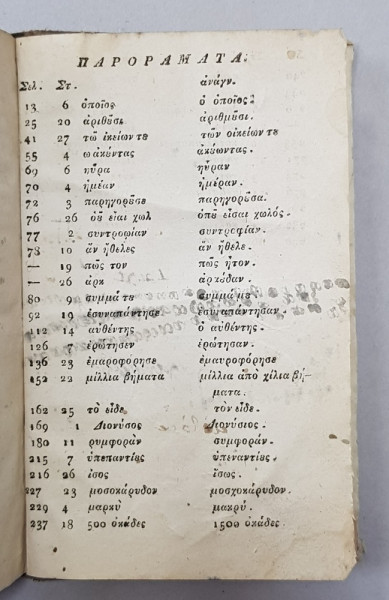 ΠΑΡΟΡΑΜΑΤΑ.
Σελ. Στ. ἀνάγν.
13 6 ὁποῖος ὁ ὁποῖος.
25 20 ἀριθῦσι ἀριθμῦσι.
41 27 τῶ ἰκείων τȣ τῶν οἰκείων τȣ
55 4 ωακύντας ἀκȣώντας.
69 6 ηὗρα ηὗραν
70 4 ἡμέαν ἡμέραν.
72 3 παρηγορȣσε παρηγορῦσα.
76 26 οὖ εἶαι χωλ ὁπȣ εἶσαι χωλός.
77 2 συντροωίαν συντροφίαν.
78 10 ἂν ἤθελες ἂν ἤθελε.
— 19 πῶς τον πῶς ἦτον.
— 26 ἀρκ ἀρκȣδαν.
80 9 συμμά τε
92 19 ἐσυναπάντησε ἐσυναπάντησαν.
112 14 αὐθέντης ὁ αὐθέντης.
126 7 ἐρώτησεν ἐρώτησαν.
136 23 ἐμαροφόρησε ἐμαυροφόρησε
152 22 μίλλια βήματα μίλλια ἀπὸ χίλια βή-
ματα.
162 25 τὸ εἶδε τὸν εἶδε.
169 1 Διονύσος Διονύσιος.
180 11 ρυμφορὰν συμφοράν.
215 7 ὑπεπαντίες ὑπεναντίες.
216 26 ἶσος ἴσως.
227 23 μοσοκάρυδον μοσχοκάρυδον.
229 4 μαρκὺ μακρύ.
237 18 500 ὀκάδες 1500 ὀκάδες.